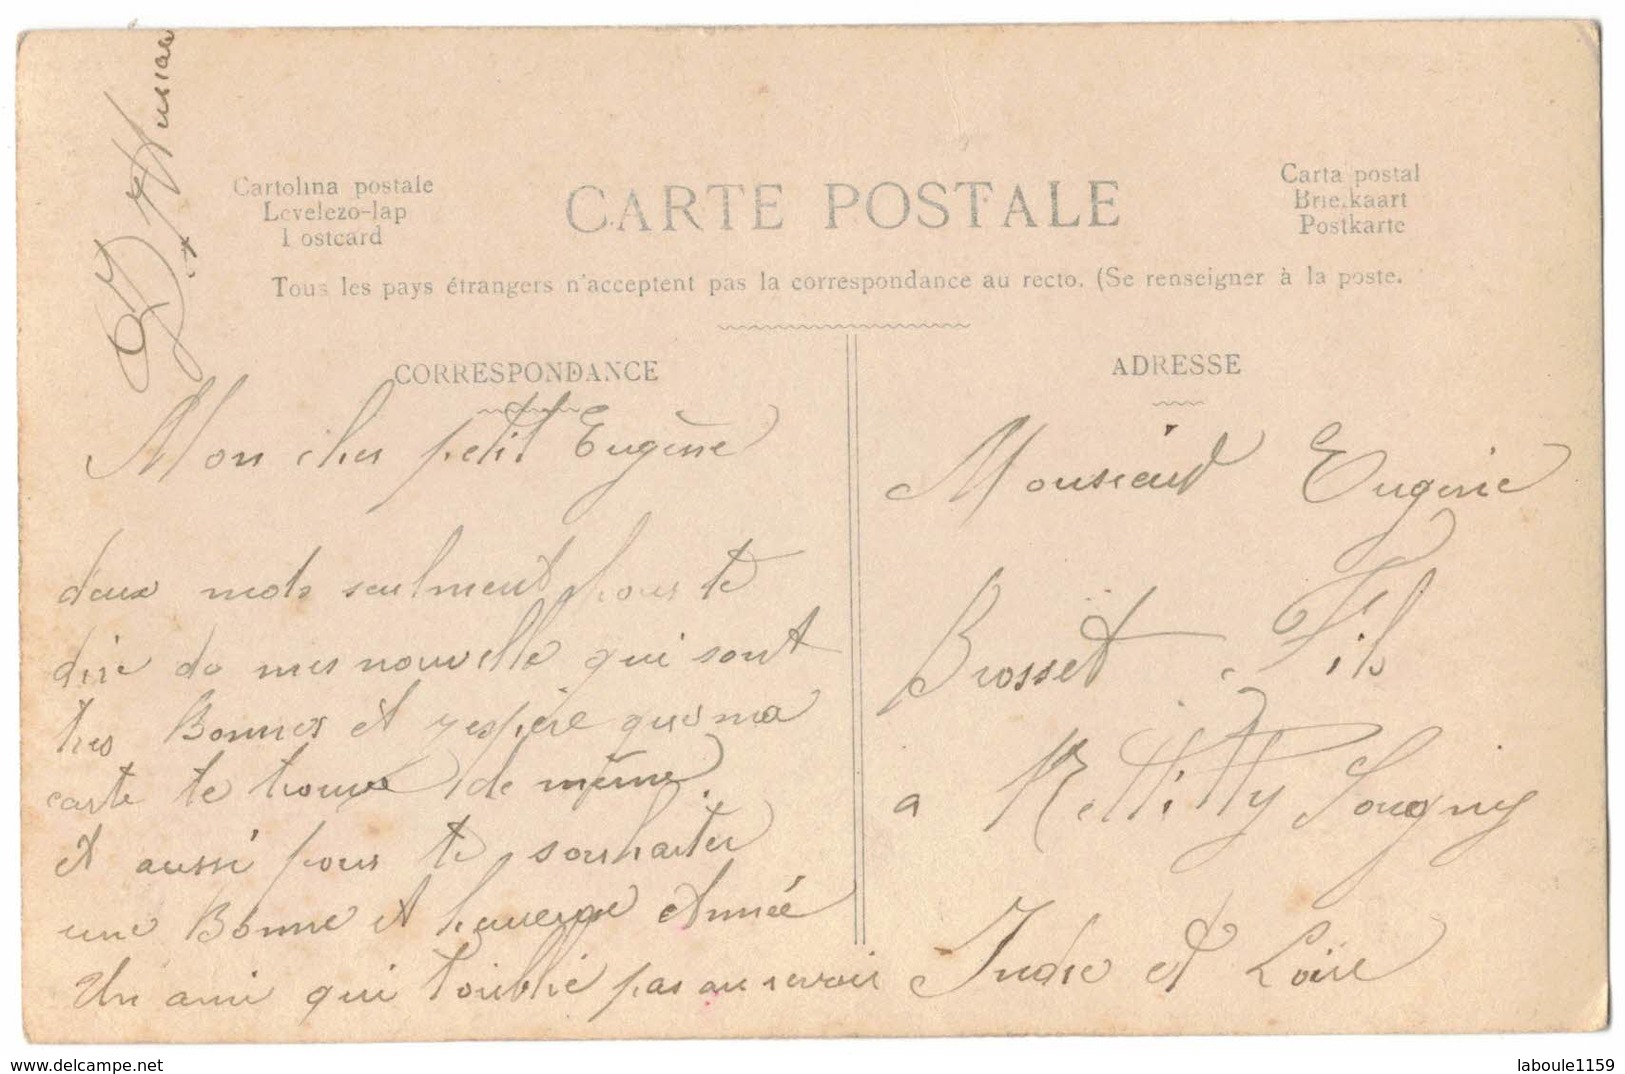 Cartolina postale
Levelezo-lap
Postcard
CARTE POSTALE
Carta postal
Briefkaart
Postkarte
Tous les pays étrangers n'acceptent pas la correspondance au recto. (Se renseigner à la poste.
CORRESPONDANCE
Mon cher petit Eugène
deux mots seulment pour te
dire de mes nouvelle qui sont
tres Bonnes et j'espère que ma
carte te trouve de même.
et aussi pour te souhaiter
une Bonne et heureuse Année
Un ami qui t'oublie pas au revoir
ADRESSE
Monsieur Eugenie
Brosset Fils
a Rettitty Sougny
Indre et Loire
www.delcampe.net
laboule1159